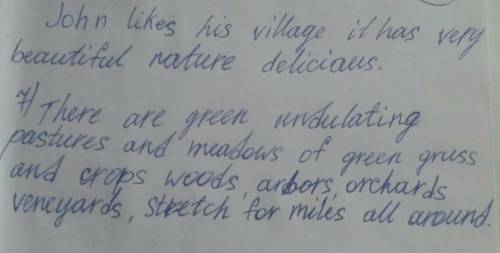 John likes his village it has very
beautiful nature delicious.
7) There are green undulating
pastures and meadows of green gruss
and crops woods, arbors, orchards
veneyards, stretch for miles all around.